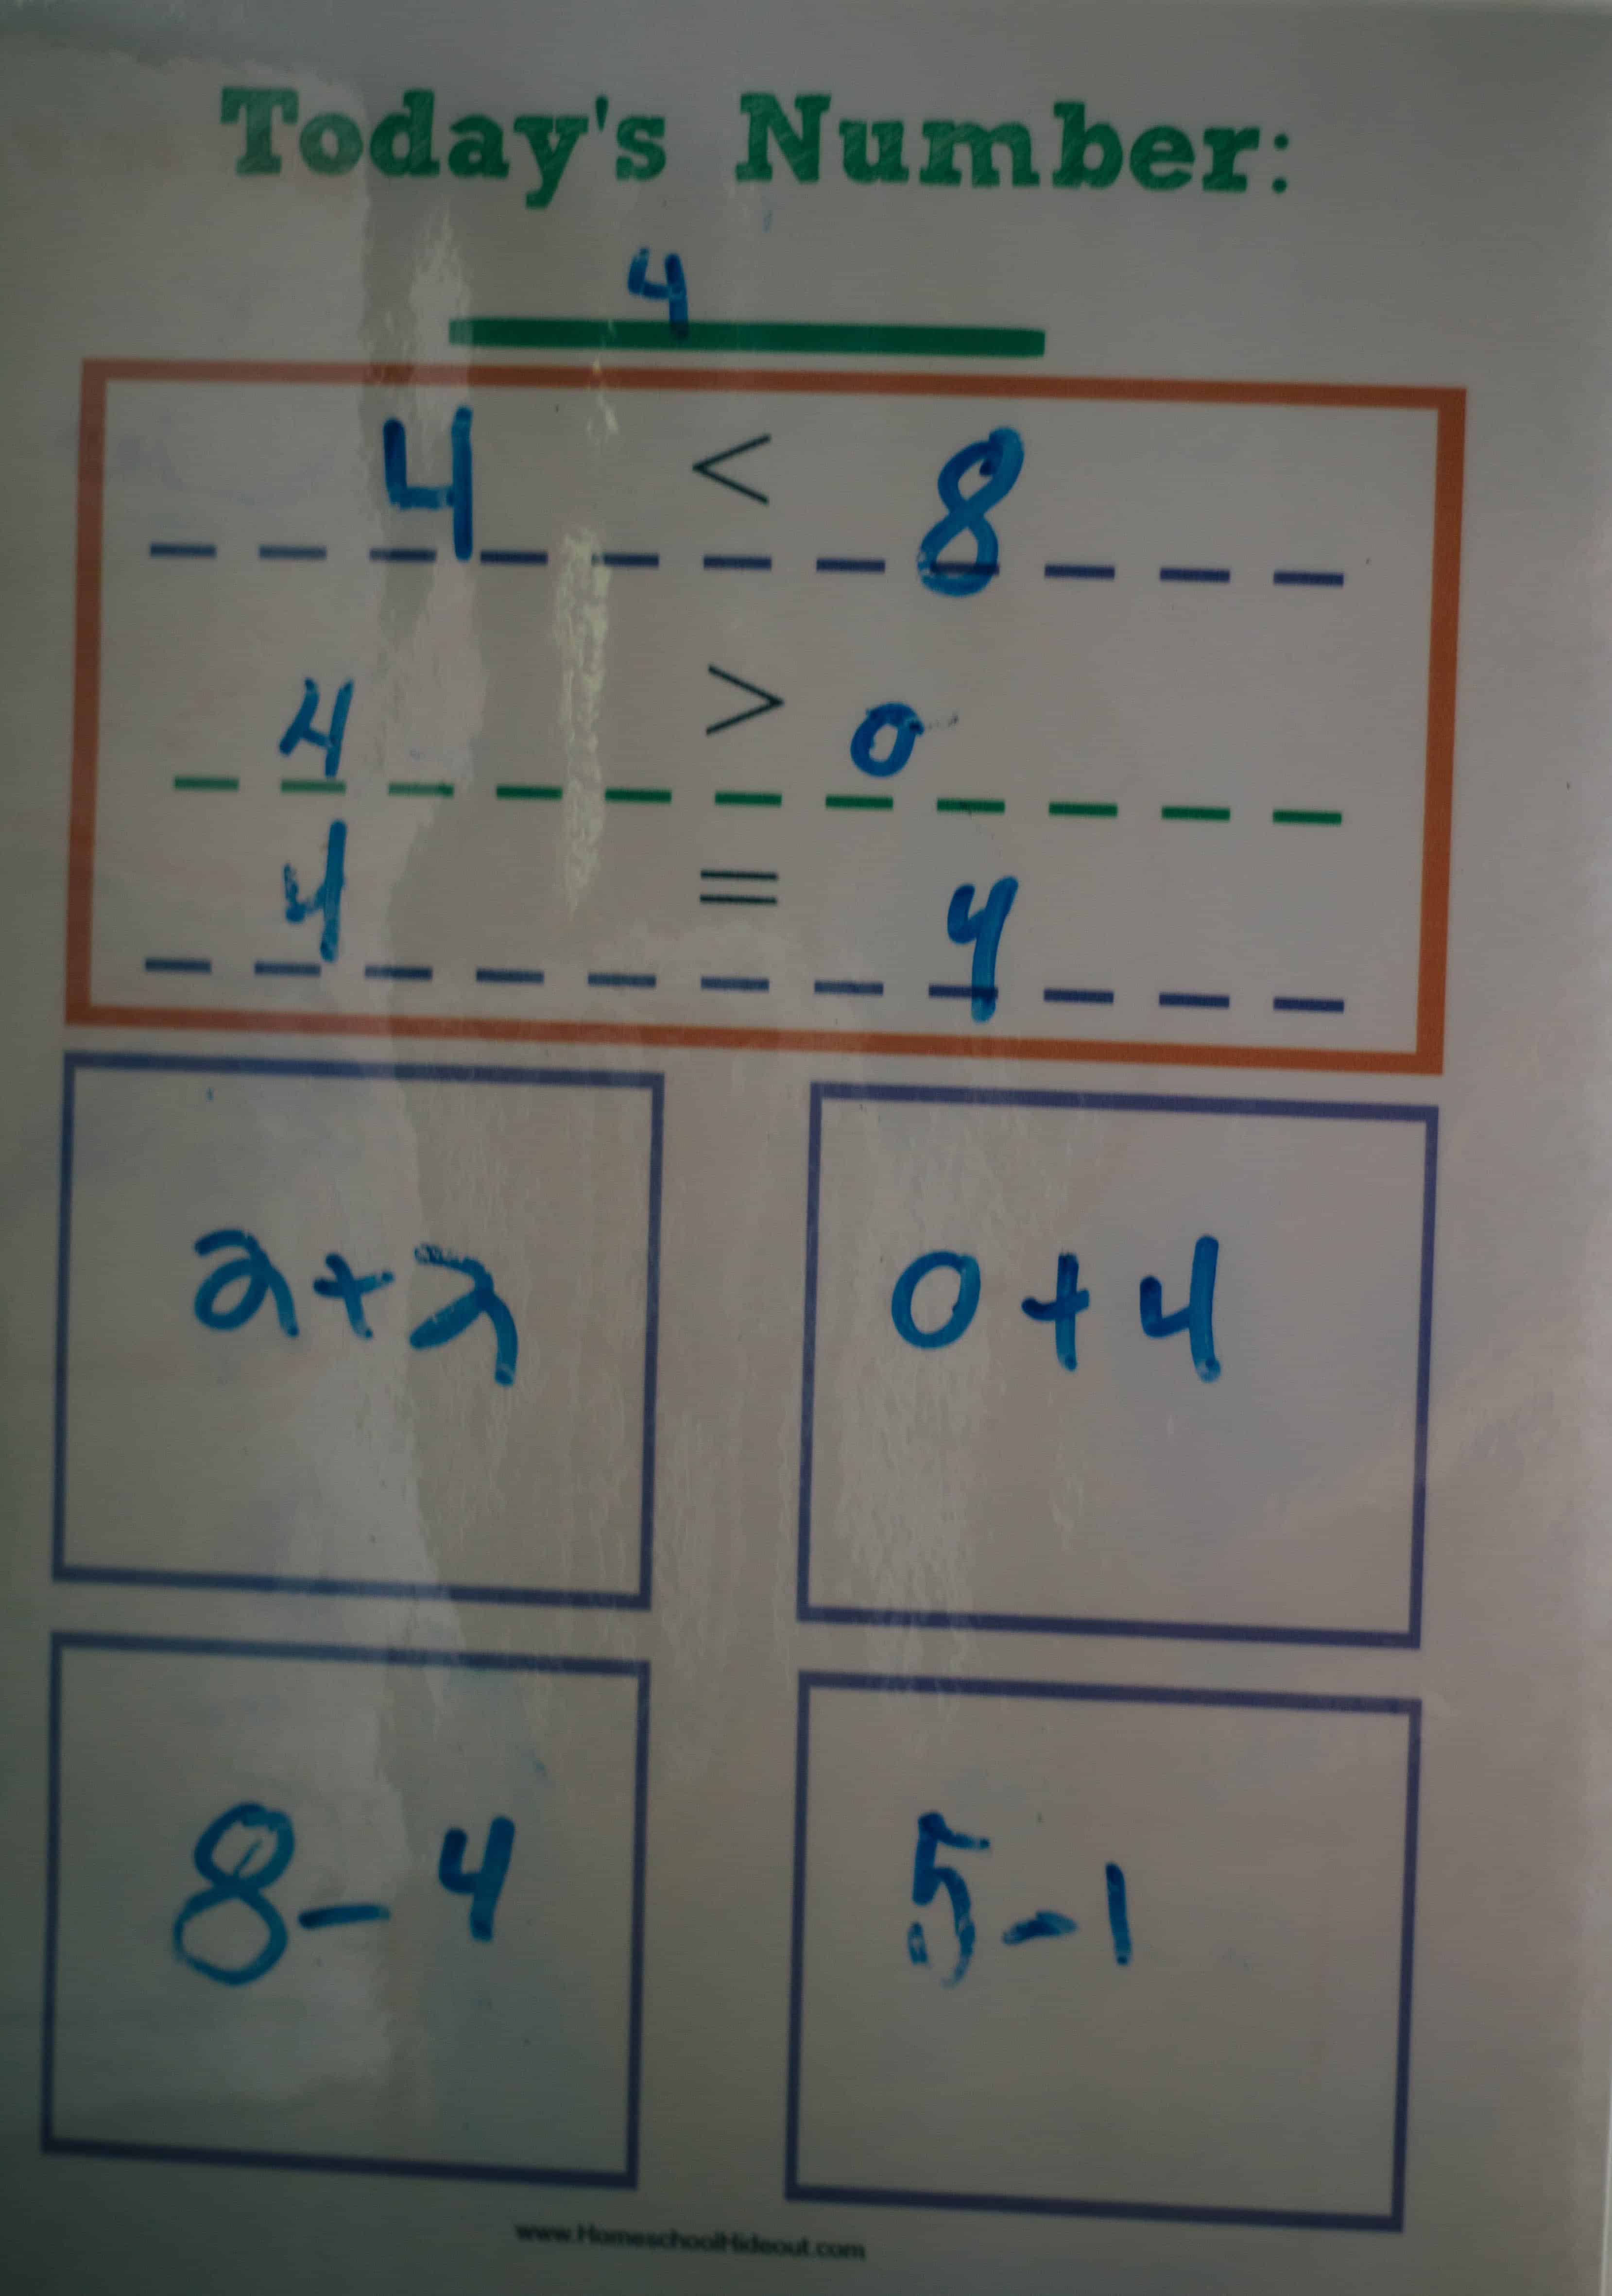 Today's Number:
4
4 < 8
4 > 0
4 = 4
2+2
0+4
8-4
5-1
www.HomeschoolHideout.com